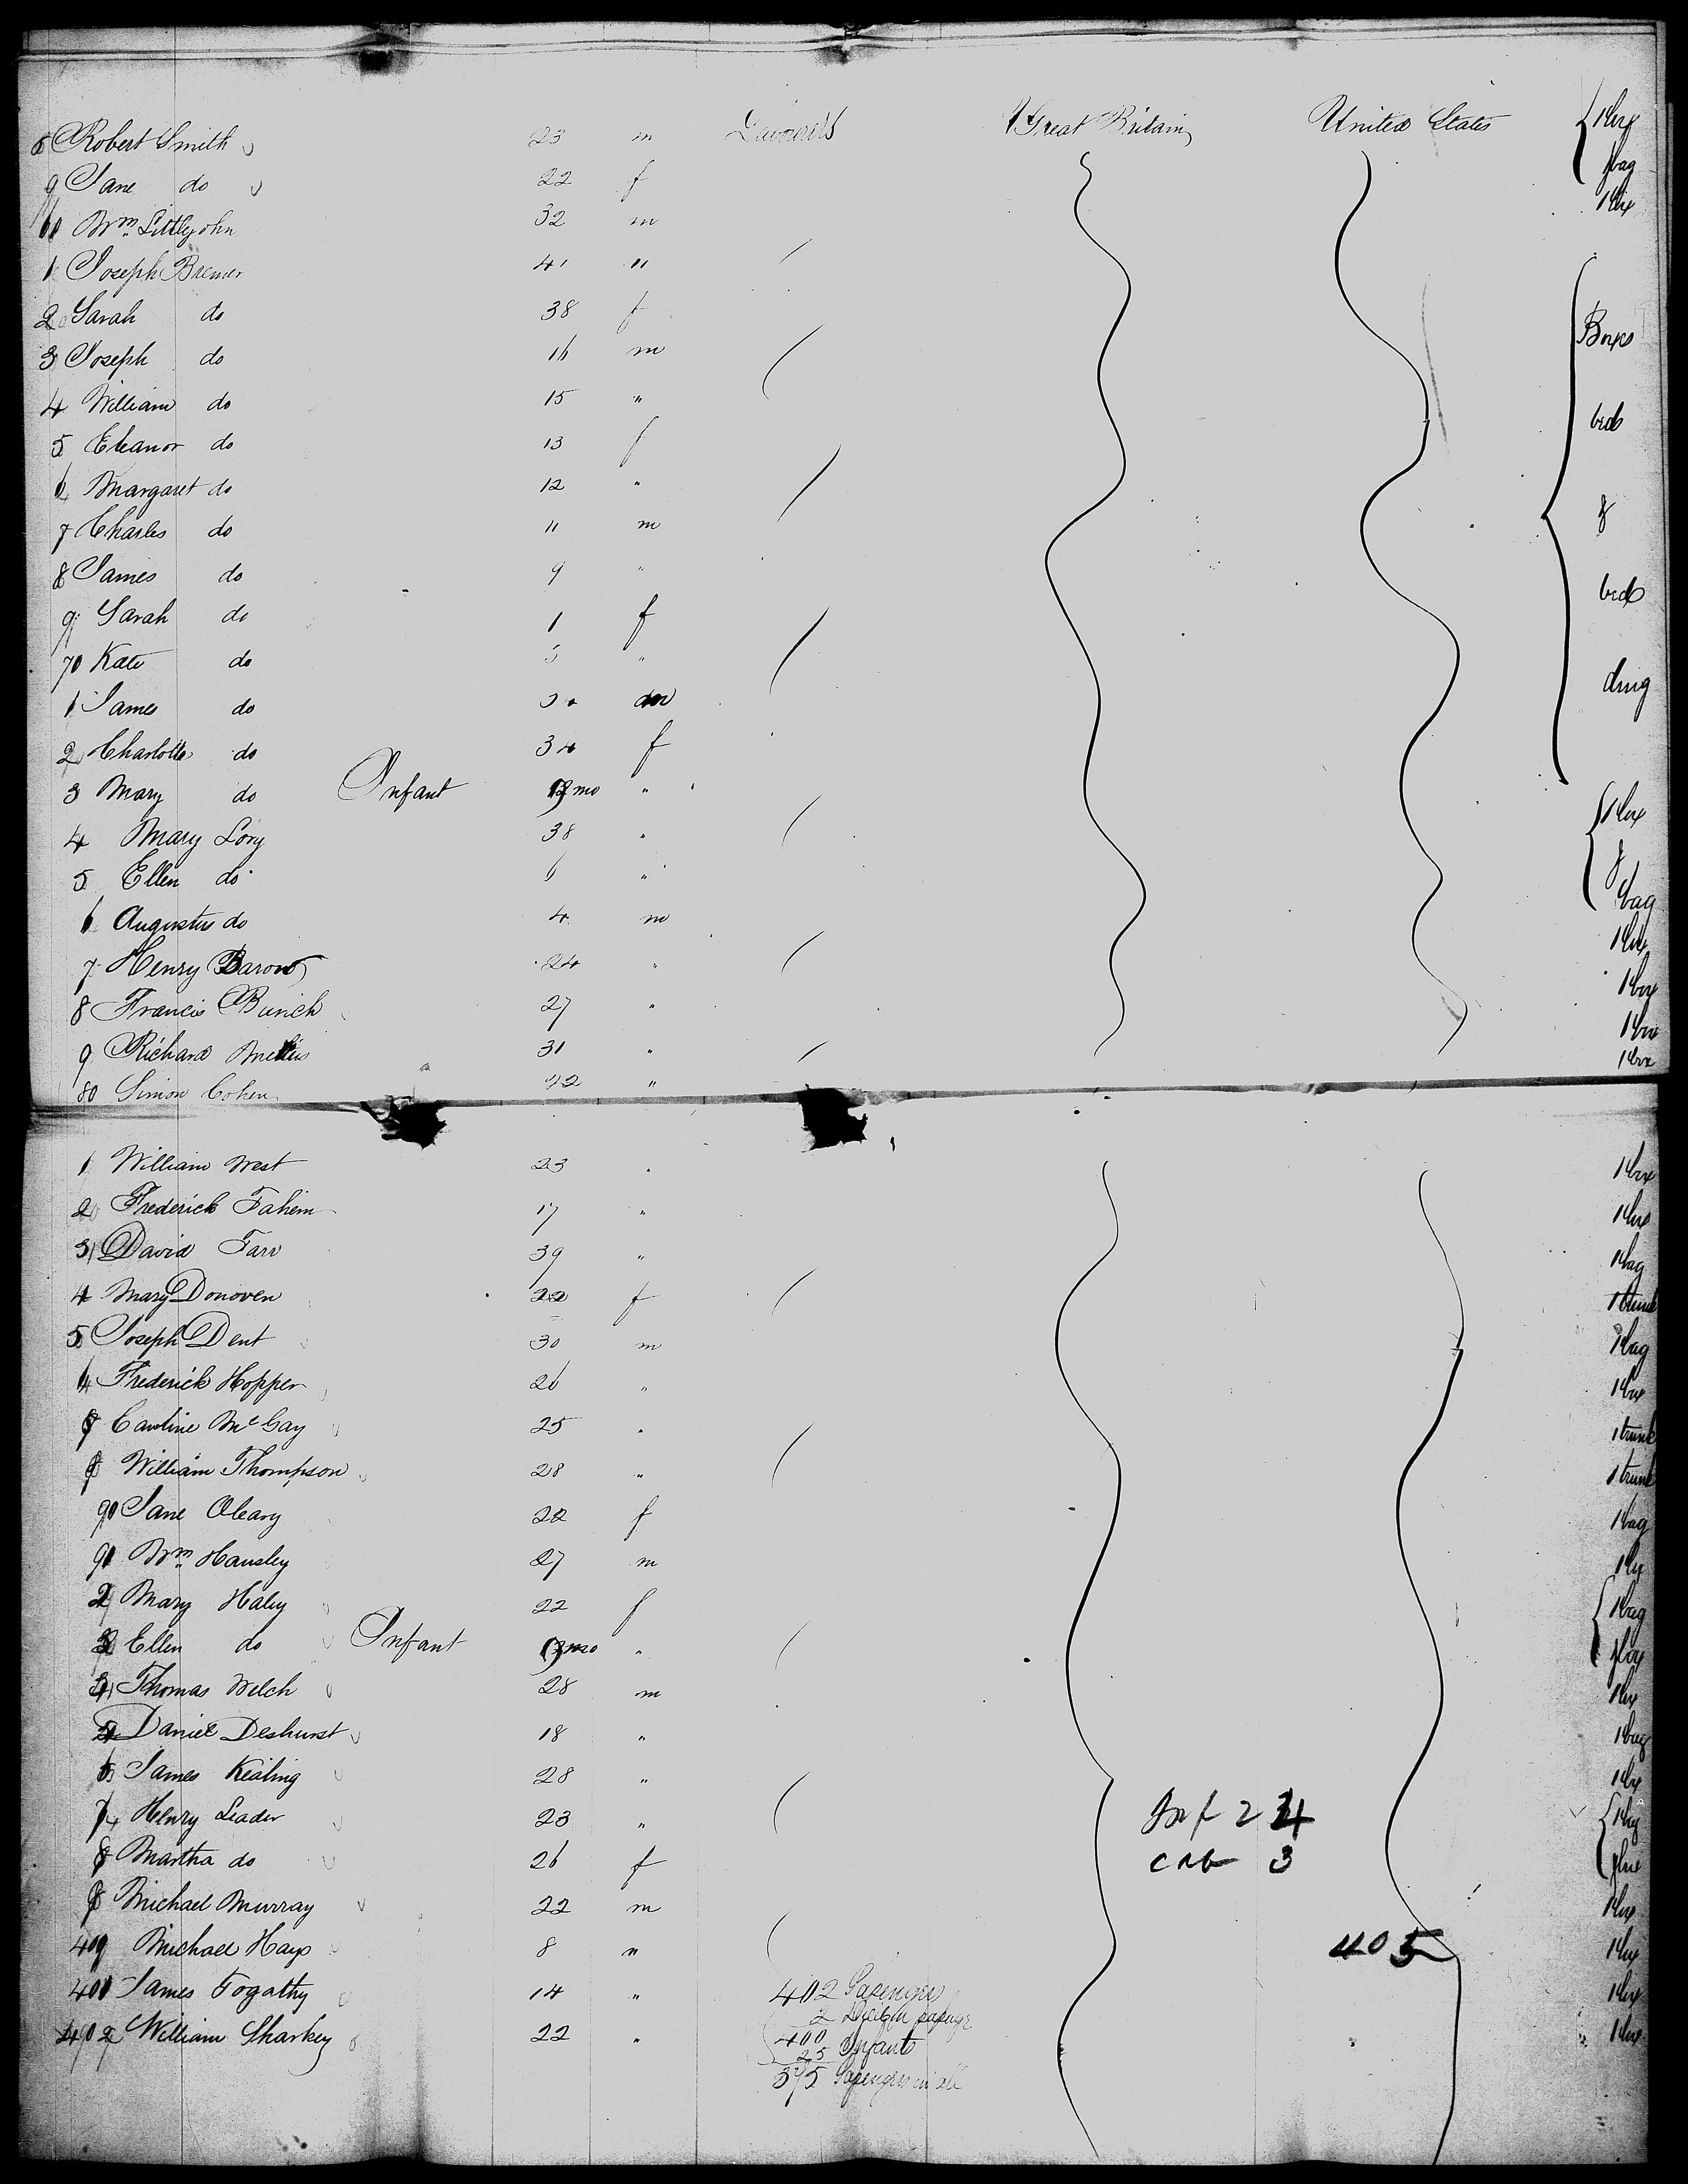 8 Robert Smith 23 m Great Britain United States 1 box
9 Jane do 22 f bag
60 Wm Littlejohn 32 m 1 box
1 Joseph Bremer 41 "
2 Sarah do 38 f
3 Joseph do 16 m Boxes
4 William do 15 "
5 Eleanor do 13 f beds
6 Margaret do 12 "
7 Charles do 11 m &
8 James do 9 "
9 Sarah do 1 f bed
70 Kate do "
1 James do ding
2 Charlotte do 34 f
3 Mary do Infant mo "
4 Mary Lory 38 " 1 box
5 Ellen do 6 " &
6 Augustus do 4 m bag
7 Henry Barow 24 " 1 box
8 Francis Bunch 27 " 1 box
9 Richard 31 " 1 box
80 Simon Cohen " 1 box
1 William West 23 " 1 box
2 Frederick Fahem 17 " 1 box
3 David Farr 39 " 1 bag
4 Mary Donoven 22 f 1 trunk
5 Joseph Dent 30 m 1 bag
6 Frederick Hopper 26 " 1 box
7 Caroline McGay 25 " 1 trunk
8 William Thompson 28 " 1 trunk
90 Jane Oleary 22 f 1 bag
91 Wm Hansley 27 m
2 Mary Haley 22 f 1 bag
3 Ellen do Infant mo "
4 Thomas Welch 28 m 1 box
Daniel Deshurst 18 " 1 bag
6 James Keating 28 " 1 box
7 Henry Leader 23 "
Inf 2 4
8 Martha do 26 f
cab 3
Michael Murray 22 m 1 box
Michael Hays 8 " 1 box
405
401 James Fogathy 14 " 1 box
402 Pasengers
2
402 William Sharkey 22 " 1 box
400
25 Infants
375 Pasengers in all